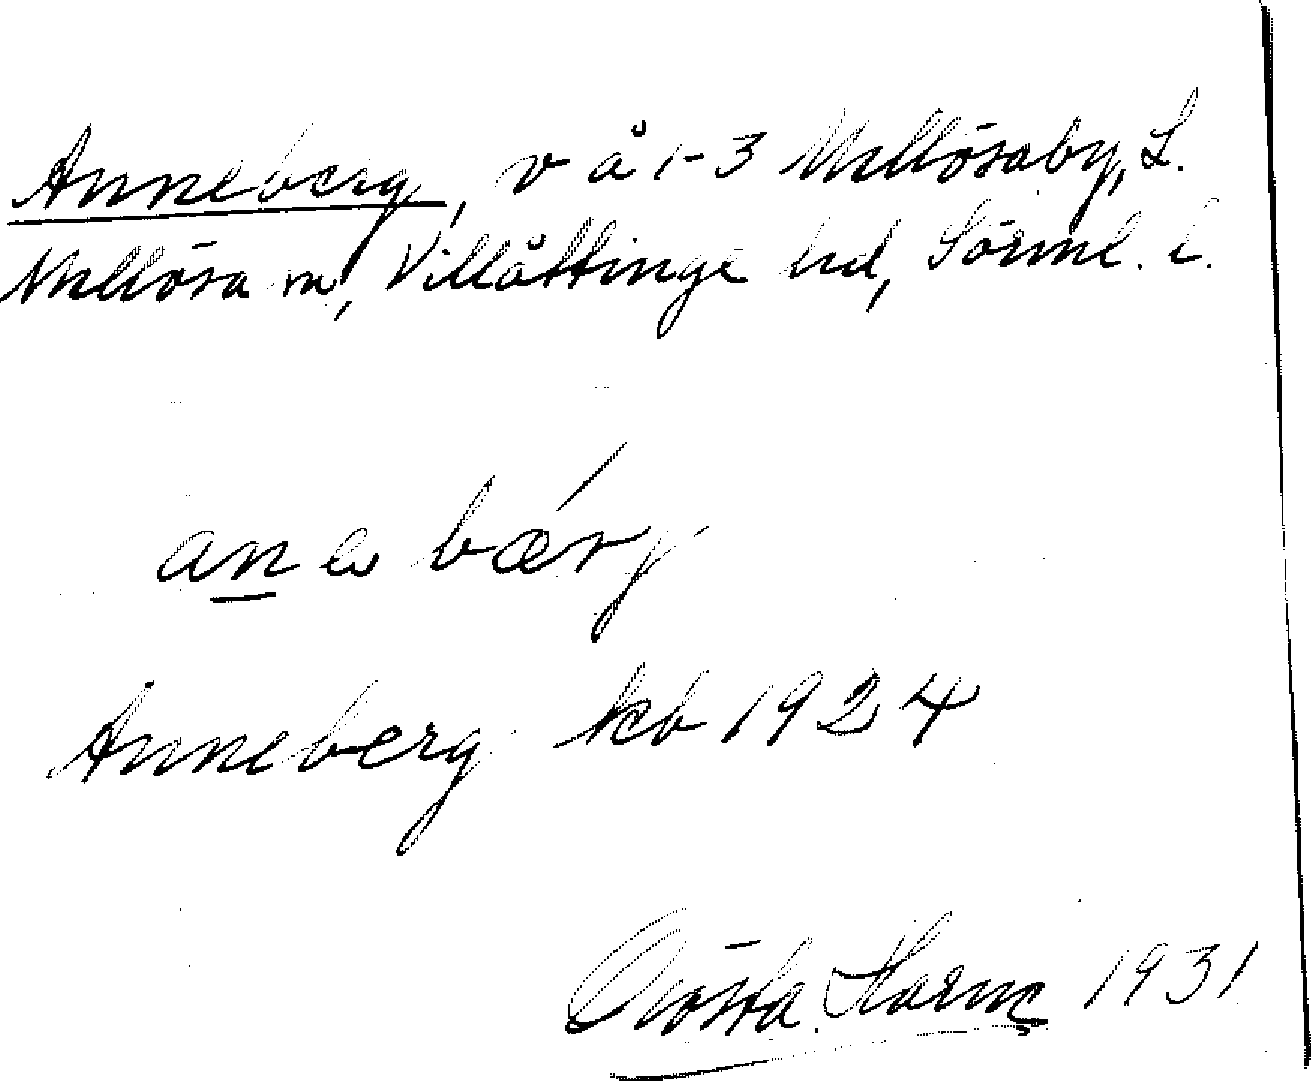 Anneberg, v å 1-3 Mellösaby, L.
Mellösa sn, Villåttinge hd, Sörml. l.
anebærj
Anneberg kb 1924
Gösta 1931